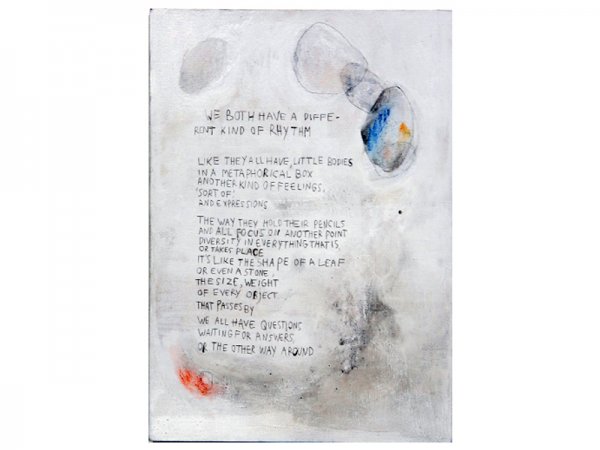 WE BOTH HAVE A DIFFE-
RENT KIND OF RHYTHM
LIKE THEY ALL HAVE, LITTLE BODIES
IN A METAPHORICAL BOX
ANOTHER KIND OF FEELINGS,
'SORT OF'
AND EXPRESSIONS
THE WAY THEY HOLD THEIR PENCILS
AND ALL FOCUS ON ANOTHER POINT
DIVERSITY IN EVERYTHING THAT IS,
OR TAKES PLACE
IT'S LIKE THE SHAPE OF A LEAF
OR EVEN A STONE,
THE SIZE, WEIGHT
OF EVERY OBJECT
THAT PASSES BY
WE ALL HAVE QUESTIONS
WAITING FOR ANSWERS,
OR THE OTHER WAY AROUND